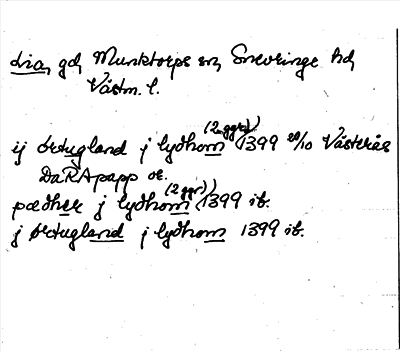 dia, gd, Munktorps sn, Snevringe hd,
Västm. l.
ij ørtugland j lydhom (2 ggr) 1399 28/10 Västerås
DaRA papp or.
pædher j lydhom (2 ggr) 1399 ib.
j ørtugland j lydhom 1399 ib.